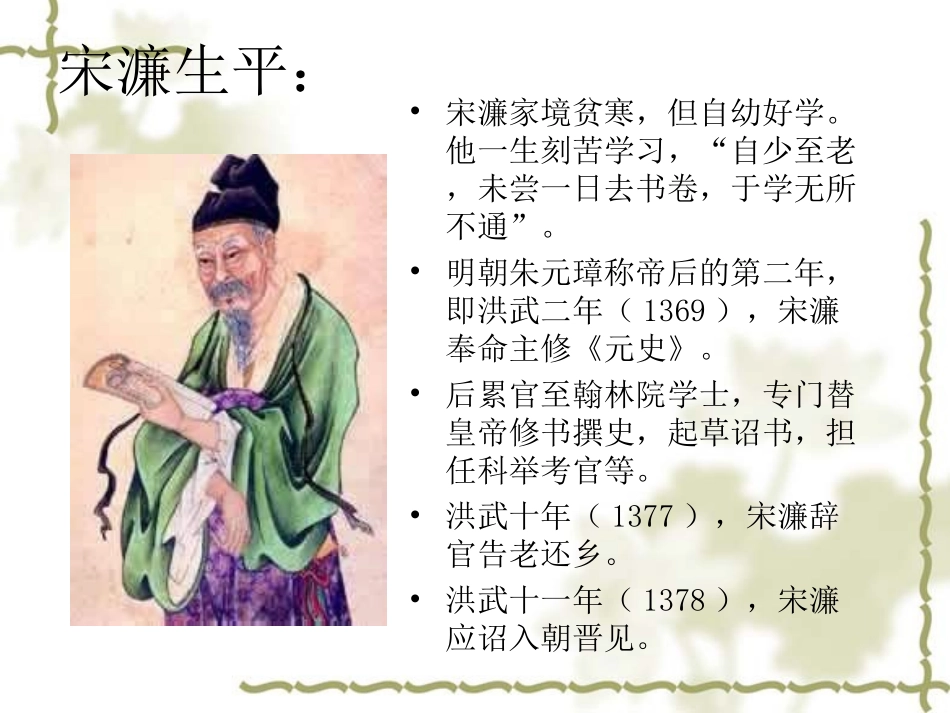 宋濂生平：
• 宋濂家境贫寒，但自幼好学。
他一生刻苦学习，“自少至老
，未尝一日去书卷，于学无所
不通”。
• 明朝朱元璋称帝后的第二年，
即洪武二年（1369），宋濂
奉命主修《元史》。
• 后累官至翰林院学士，专门替
皇帝修书撰史，起草诏书，担
任科举考官等。
• 洪武十年（1377），宋濂辞
官告老还乡。
• 洪武十一年（1378），宋濂
应诏入朝晋见。